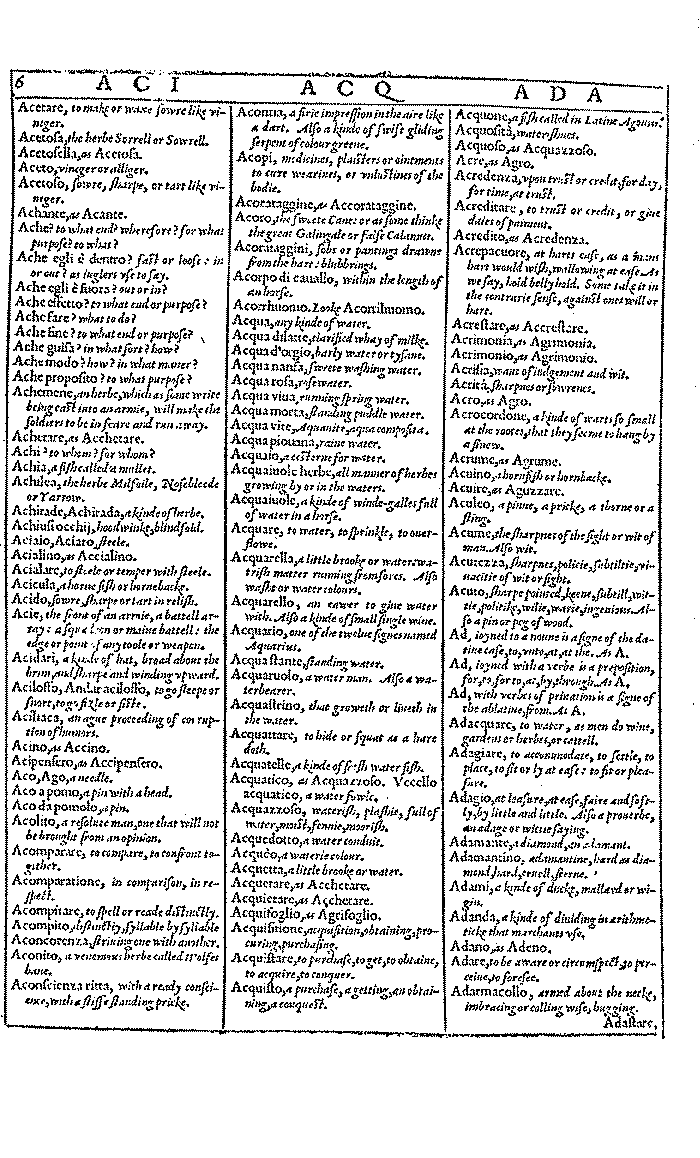 6 ACI ACQ ADA
Acetare, to make or waxe sowre like vi-
neger.
Acetosa, the herbe Sorrell or Sowrell.
Acetosella, as Acetosa.
Aceto, vineger or alliger.
Acetoso, sowre, sharpe, or tart like vi-
neger.
Achante, as Acante.
Ache? to what end? wherefore? for what
purpose? to what?
Ache egli è dentro? fast or loose: in
or out? as iuglers vse to say.
Ache egli è fuora? out or in?
Ache effetto? to what end or purpose?
Ache fare? what to do?
Ache fine? to what end or purpose?
Ache guisa? in what sort? how?
Ache modo? how? in what maner?
Ache proposito? to what purpose?
Achemene, an herbe, which as some write
being cast into an armie, will make the
soldiers to be in feare and run away.
Acherare, as Accherare.
Achi? to whom? for whom?
Achia, a fish called a mullet.
Achilea, the herbe Milfoile, Nosebleede
or Yarrow.
Achirade, Achirada, a kinde of herbe.
Achiusiocchij, hoodwinke, blindfold.
Aciaio, Aciaro, steele.
Acialino, as Accialino.
Acialare, to steele or temper with steele.
Acicula, a horne fish or hornebacke.
Acido, sowre, sharpe or tart in relish.
Acie, the front of an armie, a battell ar-
ray: a squadron or maine battell: the
edge or point of any toole or weapon.
Acidari, a kinde of hat, broad about the
brim, and sharpe and winding vpward.
Acilosso, Andar acilosso, to go steepe or
snort, to go fizle or fiste.
Acisiaca, an ague proceeding of corrup-
tion of humors.
Acino, as Accino.
Acipensero, as Accipensero.
Aco, Ago, a needle.
Aco a pomo, a pin with a head.
Aco da pomolo, a pin.
Acolito, a resolute man, one that will not
be brought from an opinion.
Acomparare, to compare, to confront to-
gither.
Acomparatione, in comparison, in re-
spect.
Acompitare, to spell or reade distinctly.
Acompito, distinctly, syllable by syllable
Aconcorenza, striuing one with another.
Aconito, a venemous herbe called Wolfes
bane.
Aconscienza ritta, with a ready consci-
ence, with a stiffe standing pricke.
Acontia, a firie impression in the aire like
a dart. Also a kinde of swift gliding
serpent of colour greene.
Acopi, medicines, plaisters or ointments
to cure wearines, or vnlustines of the
bodie.
Acorataggine, as Accorataggine.
Acoro, the sweete Cane: or as some thinke
the great Galingale or false Calamus.
Acorataggini, sobs or pantings drawne
from the hart: blubbrings.
Acorpo di cauallo, within the length of
an horse.
Acorrhuomo. Looke Acorilhuomo.
Acqua, any kinde of water.
Acqua dilatte, clarified whay of milke.
Acqua d'orgio, barly water or tysane.
Acqua nanfa, sweete washing water.
Acqua rosa, rosewater.
Acqua viua, running spring water.
Acqua morta, standing puddle water.
Acqua vite, Aquauite, aqua composita.
Acqua piouana, raine water.
Acquaio, a cesterne for water.
Acquaiuole herbe, all manner of herbes
growing by or in the waters.
Acquaiuole, a kinde of winde-galles full
of water in a horse.
Acquare, to water, to sprinkle, to ouer-
flowe.
Acquarella, a little brooke or water: wa-
trish matter running from sores. Also
wash or water colours.
Acquarello, an eawer to giue water
with. Also a kinde of small single wine.
Acquario, one of the twelue signes named
Aquarius.
Acqua stante, standing water.
Acquaruolo, a water man. Also a wa-
terbearer.
Acquastrino, that groweth or liueth in
the water.
Acquattare, to hide or squat as a hare
doth.
Acquatelle, a kinde of fresh water fish.
Acquatico, as Acquazzoso. Vccello
acquatico, a water fowle.
Acquazzoso, waterish, plashie, full of
water, moist, fennie, moorish.
Acquedotto, a water conduit.
Acqueo, a waterie colour.
Acquetta, a little brooke or water.
Acquetare, as Acchetare.
Acquietare, as Acchetare.
Acquifoglio, as Agrifoglio.
Acquisitione, acquisition, obtaining, pro-
curing, purchasing.
Acquistare, to purchase, to get, to obtaine,
to acquire, to conquer.
Acquisto, a purchase, a getting, an obtai-
ning, a conquest.
Acquone, a fish called in Latine
Acquosità, waterishnes.
Acquoso, as Acquazzoso.
Acre, as Agro.
Acredenza, vpon trust or credit, for day,
for time, at trust.
Acreditare, to trust or credit, or giue
daies of paiment.
Acredito, as Acredenza.
Acrepacuore, at harts ease, as a mans
hart would wish, wallowing at ease. As
we say, hold belly hold. Some take it in
the contrarie sense, against ones will or
hart.
Acrestare, as Accrestare.
Acrimonia, as Agrimonia.
Acrimonio, as Agrimonio.
Acrisia, want of iudgement and wit.
Acrità, sharpnes or sowrenes.
Acro, as Agro.
Acrocordone, a kinde of warts so small
at the rootes, that they seeme to hang by
a sinew.
Acrume, as Agrume.
Acuino, a hornfish or hornbacke.
Acuire, as Aguzzare.
Aculeo, a pinne, a pricke, a thorne or a
sting.
Acume, the sharpnes of the sight or wit of
man. Also wit.
Acutezza, sharpnes, policie, subtiltie, vi-
uacitie of wit or sight.
Acuto, sharpe pointed, keene, subtill, wit-
tie, politike, wilie, warie, ingenious. Al-
so a pin or peg of wood.
Ad, ioyned to a noune is a signe of the da-
tiue case, to, vnto, at, at the. As A.
Ad, ioyned with a verbe is a preposition,
for, to, for to, at, by, through. As A.
Ad, with verbes of priuation is a signe of
the ablatiue, from. As A.
Adacquare, to water, as men do wine,
gardens or herbes, or cattell.
Adagiare, to accommodate, to settle, to
place, to sit or ly at ease: to fit or plea-
sure.
Adagio, at leasure, at ease, faire and soft-
ly, by little and little. Also a prouerbe,
an adage or wittie saying.
Adamante, a diamond, an adamant.
Adamantino, adamantine, hard as dia-
mond, hard, cruell, sterne.
Adami, a kinde of ducke, mallard or wi-
gin.
Adanda, a kinde of diuiding in arithme-
ticke that marchants vse.
Adano, as Adeno.
Adare, to be aware or circumspect, to per-
ceiue, to foresee.
Adarmacollo, armed about the necke,
imbracing or colling wise, hugging.
Adastare,